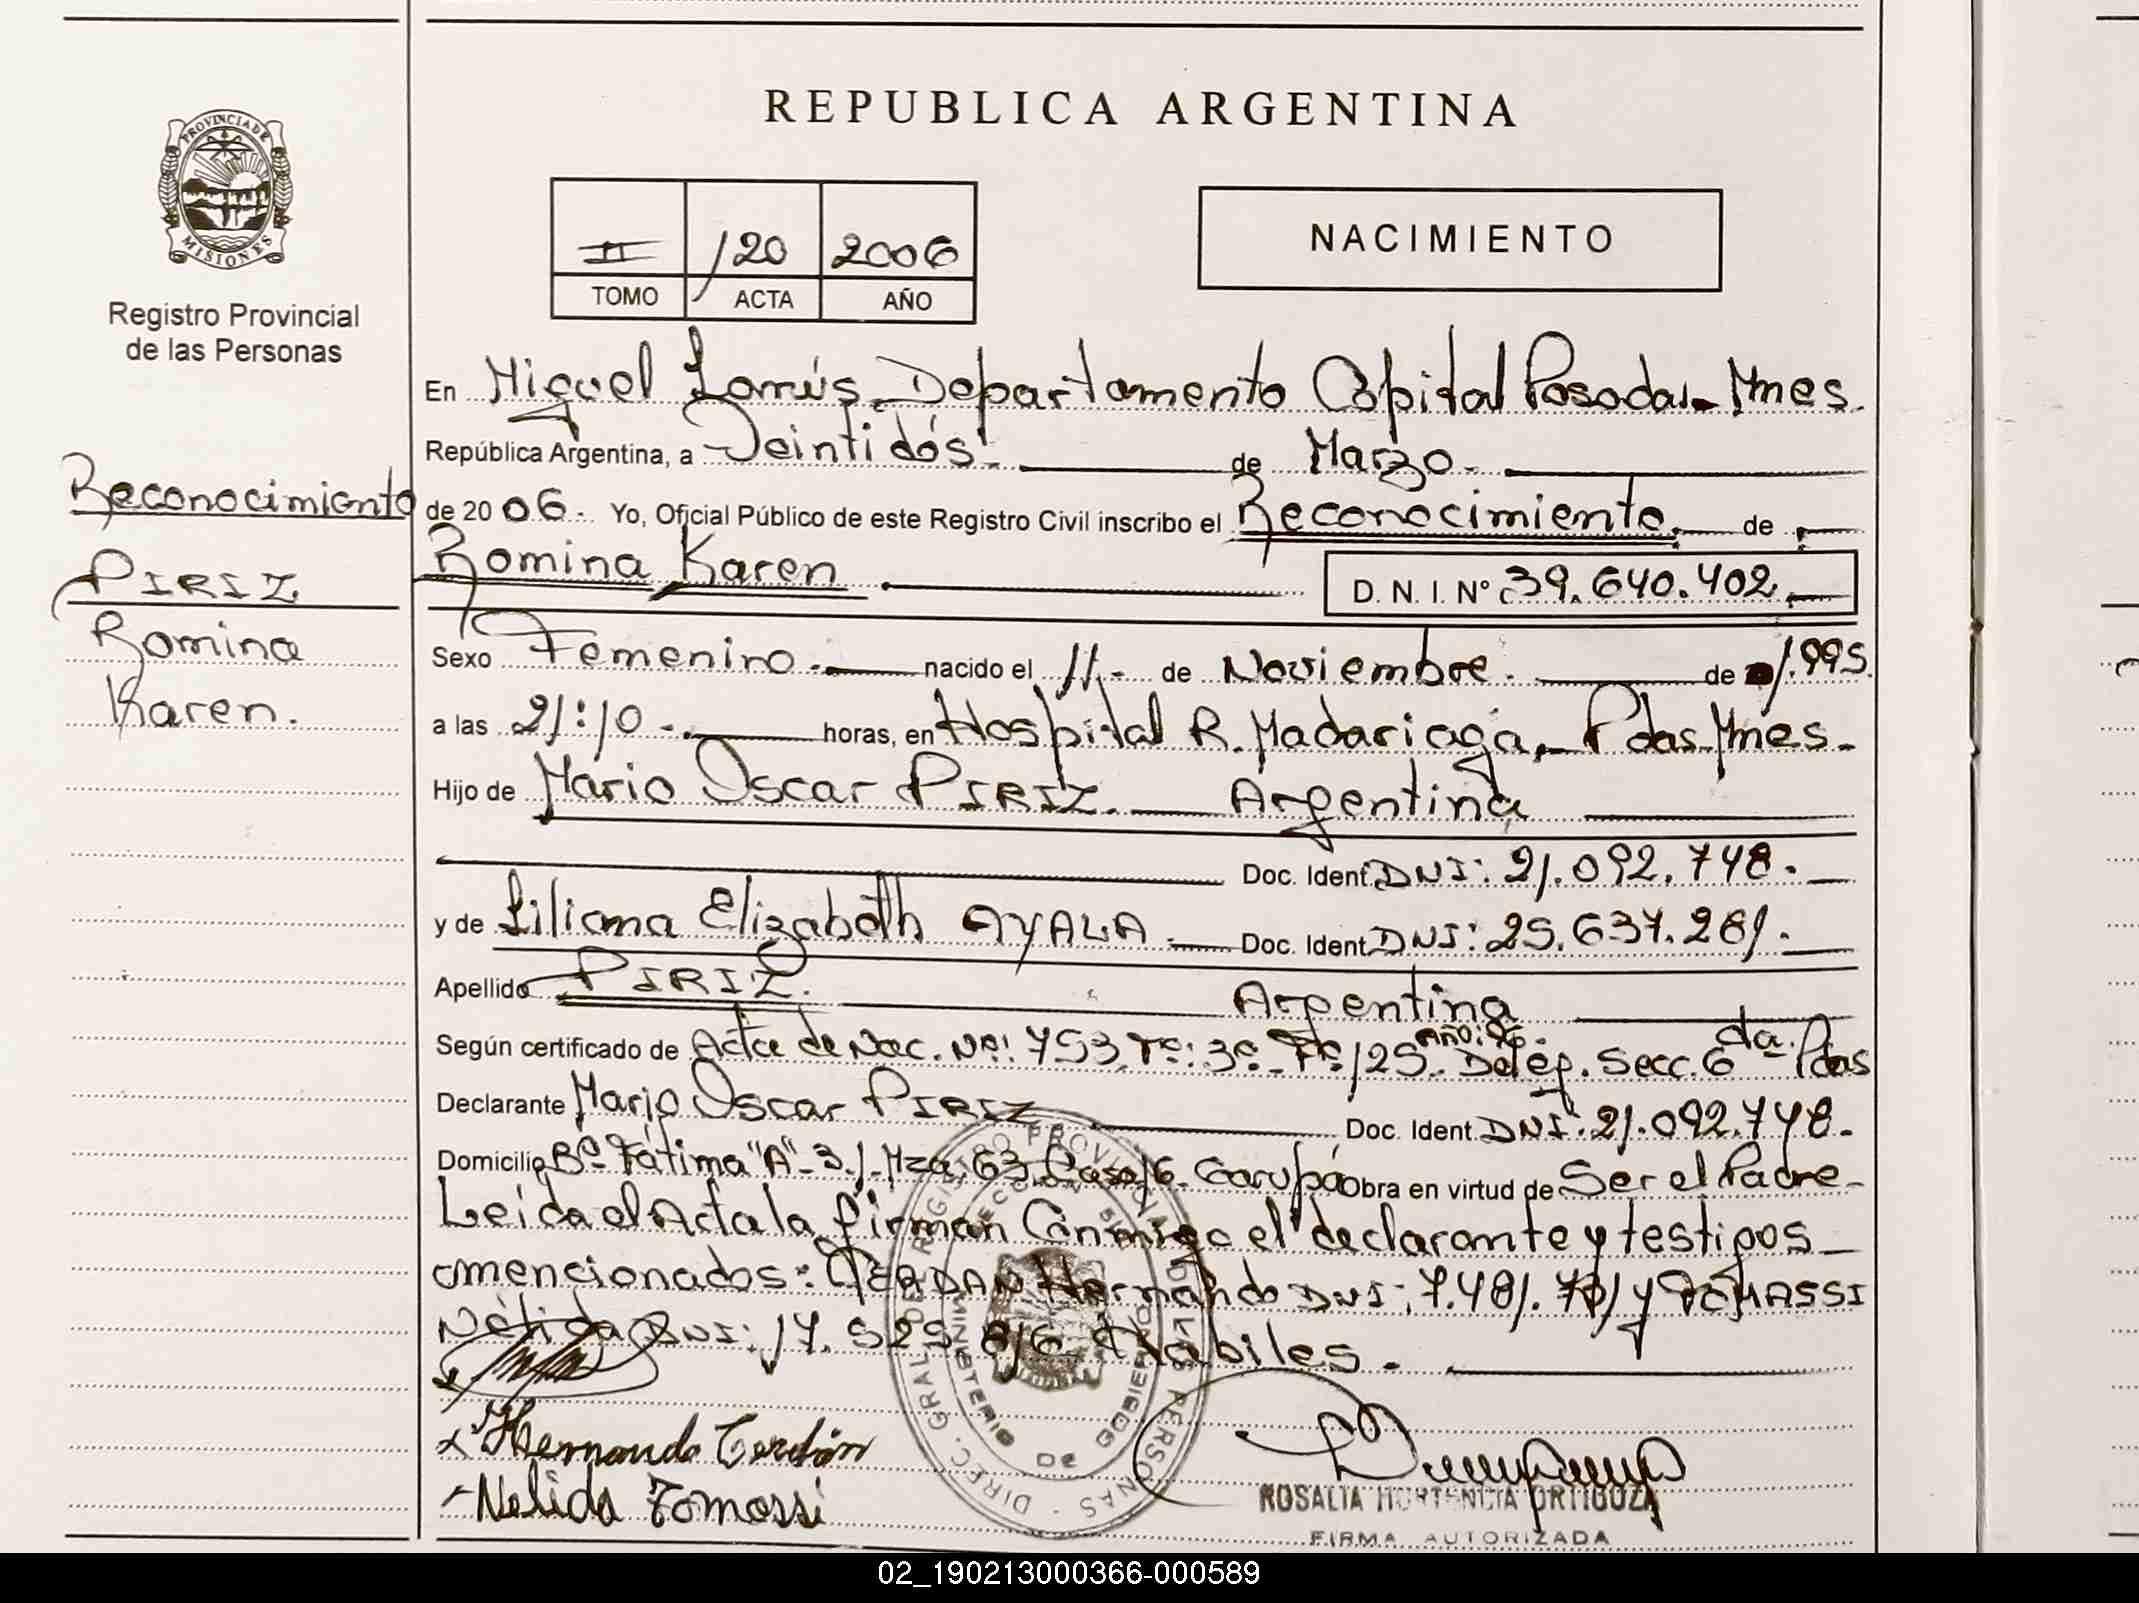 PROVINCIA DE
MISIONES
Registro Provincial
de las Personas
Reconocimiento
PIRIZ
Romina
Karen.
REPUBLICA ARGENTINA
II 120 2006
TOMO ACTA AÑO
NACIMIENTO
En Miguel Lanús, Departamento Capital Posadas - Mnes.
República Argentina, a Veintidós. de Marzo.
de 2006. Yo, Oficial Público de este Registro Civil inscribo el Reconocimiento. de
Romina Karen D. N. I. Nº 39.640.402
Sexo Femenino. nacido el 11. de Noviembre. de 1.995.
a las 21:10. horas, en Hospital R. Madariaga, Pdas. Mnes.
Hijo de Mario Oscar PIRIZ. Argentina
Doc. Ident. DNI: 21.092.748.
y de Liliana Elizabeth AYALA Doc. Ident. DNI: 25.637.281.
Apellido PIRIZ. Argentina
Según certificado de Acta de Nac. Nº: 753. Tº: 3º. Fº: 125. Año: 96. Deleg. Secc. 6da. Pdas
Declarante Mario Oscar PIRIZ Doc. Ident. DNI: 21.092.748.
Domicilio Bº Fátima "A" 3. Mza. 63. Casa 16. Garupá Obra en virtud de Ser el Padre
Leida el Acta la firman Conmigo el declarante y testigos
mencionados: CERDAN Hernando DNI: 7.481. y TOMASSI
Nélida DNI: 17.525.816 Hábiles.
x Hernando Cerdán
Nelida Tomassi
DIREC. GRAL. DEL REGISTRO PROVINCIAL DE LAS PERSONAS
MINISTERIO DE GOBIERNO
ROSALIA HORTENCIA ORTIGOZA
FIRMA AUTORIZADA
02_190213000366-000589